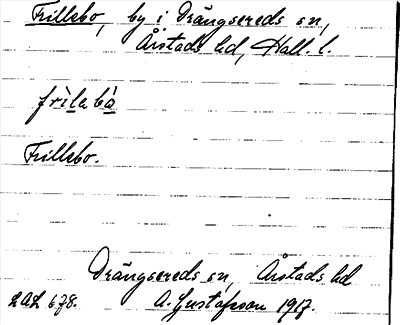 Frillsbo, by i Drängsereds sn,
Årstads hd, Hall. l.
frìlabò
Frillsbo.
Drängsereds sn, Årstads hd
LAL 678. A. Gustafsson 1917.